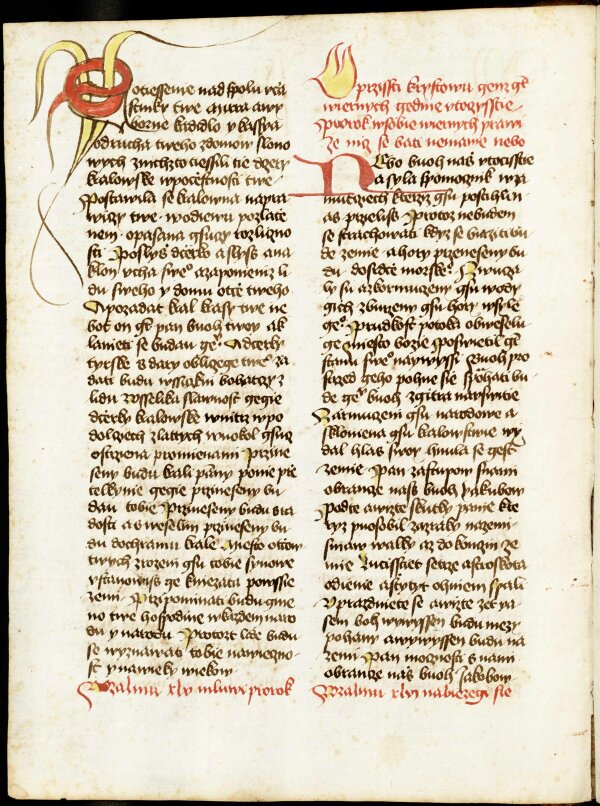 potiessenie nad spolu vcza
stniky twe Mirra a wy
borne kadidlo y kassya
od rucha tweho zdomow slono
wych z nichzto tiessili tie dczery
kralowske w poczestnosti twe
Postawila se kralowna napra
wiczy twe w odiewu pozlacze
nem opasana gsuczy rozlicno
sti Poslys dczerko a slyss a na
klon vcha sweho a zapomeniz li
du sweho y domu otcze tweho
A pozadat kral krasy twe ne
bot on gest pan buoh twoy a k
laneti se budau gemu A dczerky
tyrske s dary obliczege tweho za
dati budu wssiczkni bohatczy z
lidu Wsselika slawnost gegie
dczerky kralowske w nitrz w po
dolczech zlatych w uokol gsucz
ostrzena promienami Przine
seny budu krali panny ponie prie
telkynie gegie przineseny bu
dau tobie Przineseny budu s ra
dosti a s weselim przineseny bu
du do chramu krale Miesto otczow
twych zrozeni gsu tobie synowe
vstanowiss ge kniezata po wssie
zemi Przipominati budu gme
no twe hospodine w kazdem naro
du y narodu Protozt lide budu
se wyznawati tobie na wieczno
st y na wieky wiekom
Pzalmu xlv mluwi prorok
O przissti krystowu genz gest
wiernych gedine vtoczysstie
Prorok w sobie wiernych prawi
ze nicz se bati nemame nebo
Nebo buoh nas vtoczisstie
a syla spomocznik w za
mutczech kterzyz gsu postihli n
as przielis Protoz nebudem
se strachowati kdyz se buržiti bu
de zemie a hory przeneseny bu
du do srdcze morzske Zwucza
ly su a zkormuczeny gsu wody
gich zburzeny gsu hory w syle
geho Prudkost potoka obweselu
ge miesto bozie poswietil gest
stanu sweho naywyssi Buoh pro
strzed geho pohne sie spomahati bu
de gemu buoh z gitra na switie
Zarmuczeni gsu narodowe a
sklonena gsu kralowstwie wy
dal hlas swoy hnula se gest
zemie Pan zastupow s nami
obrancze nass buoh yakubow
Podte a wizte skutky panie kte
ryz puosobil zazraky na zemi
snimaw walky az do konczin ze
mie Luczisstiet setrze a struskota
odienie a stityt ohniem spali
Vprazdniete se a wizte zet ya
sem boh wywyssen budu mezy
pohany a wywyssen budu na
zemi Pan mocznosti s nami
obrancze nas buoh Jakobow
Pzalmu xlvi nabiezegi sie